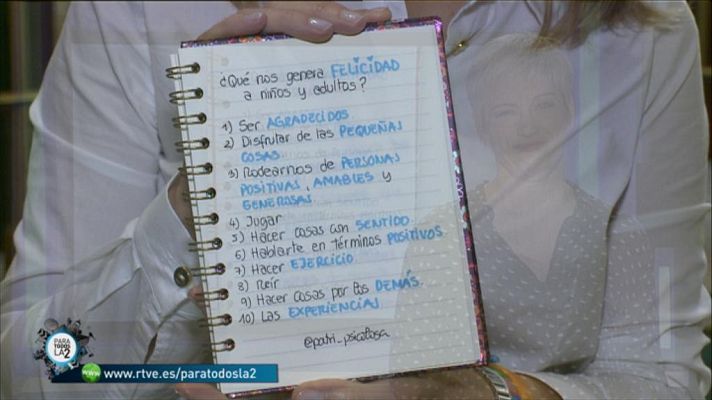 ¿Qué nos genera FELICIDAD
a niños y adultos?
1) Ser AGRADECIDOS.
2) Disfrutar de las PEQUEÑAS
COSAS
3) Rodearnos de PERSONAS
POSITIVAS, AMABLES y
GENEROSAS.
4) Jugar
5) Hacer cosas con SENTIDO.
6) Hablarte en términos POSITIVOS
7) Hacer EJERCICIO
8) Reír
9) Hacer cosas por los DEMÁS.
10) Las EXPERIENCIAS
@patri_psicologa
PARA
TODOS
LA2
www.
www.rtve.es/paratodosla2